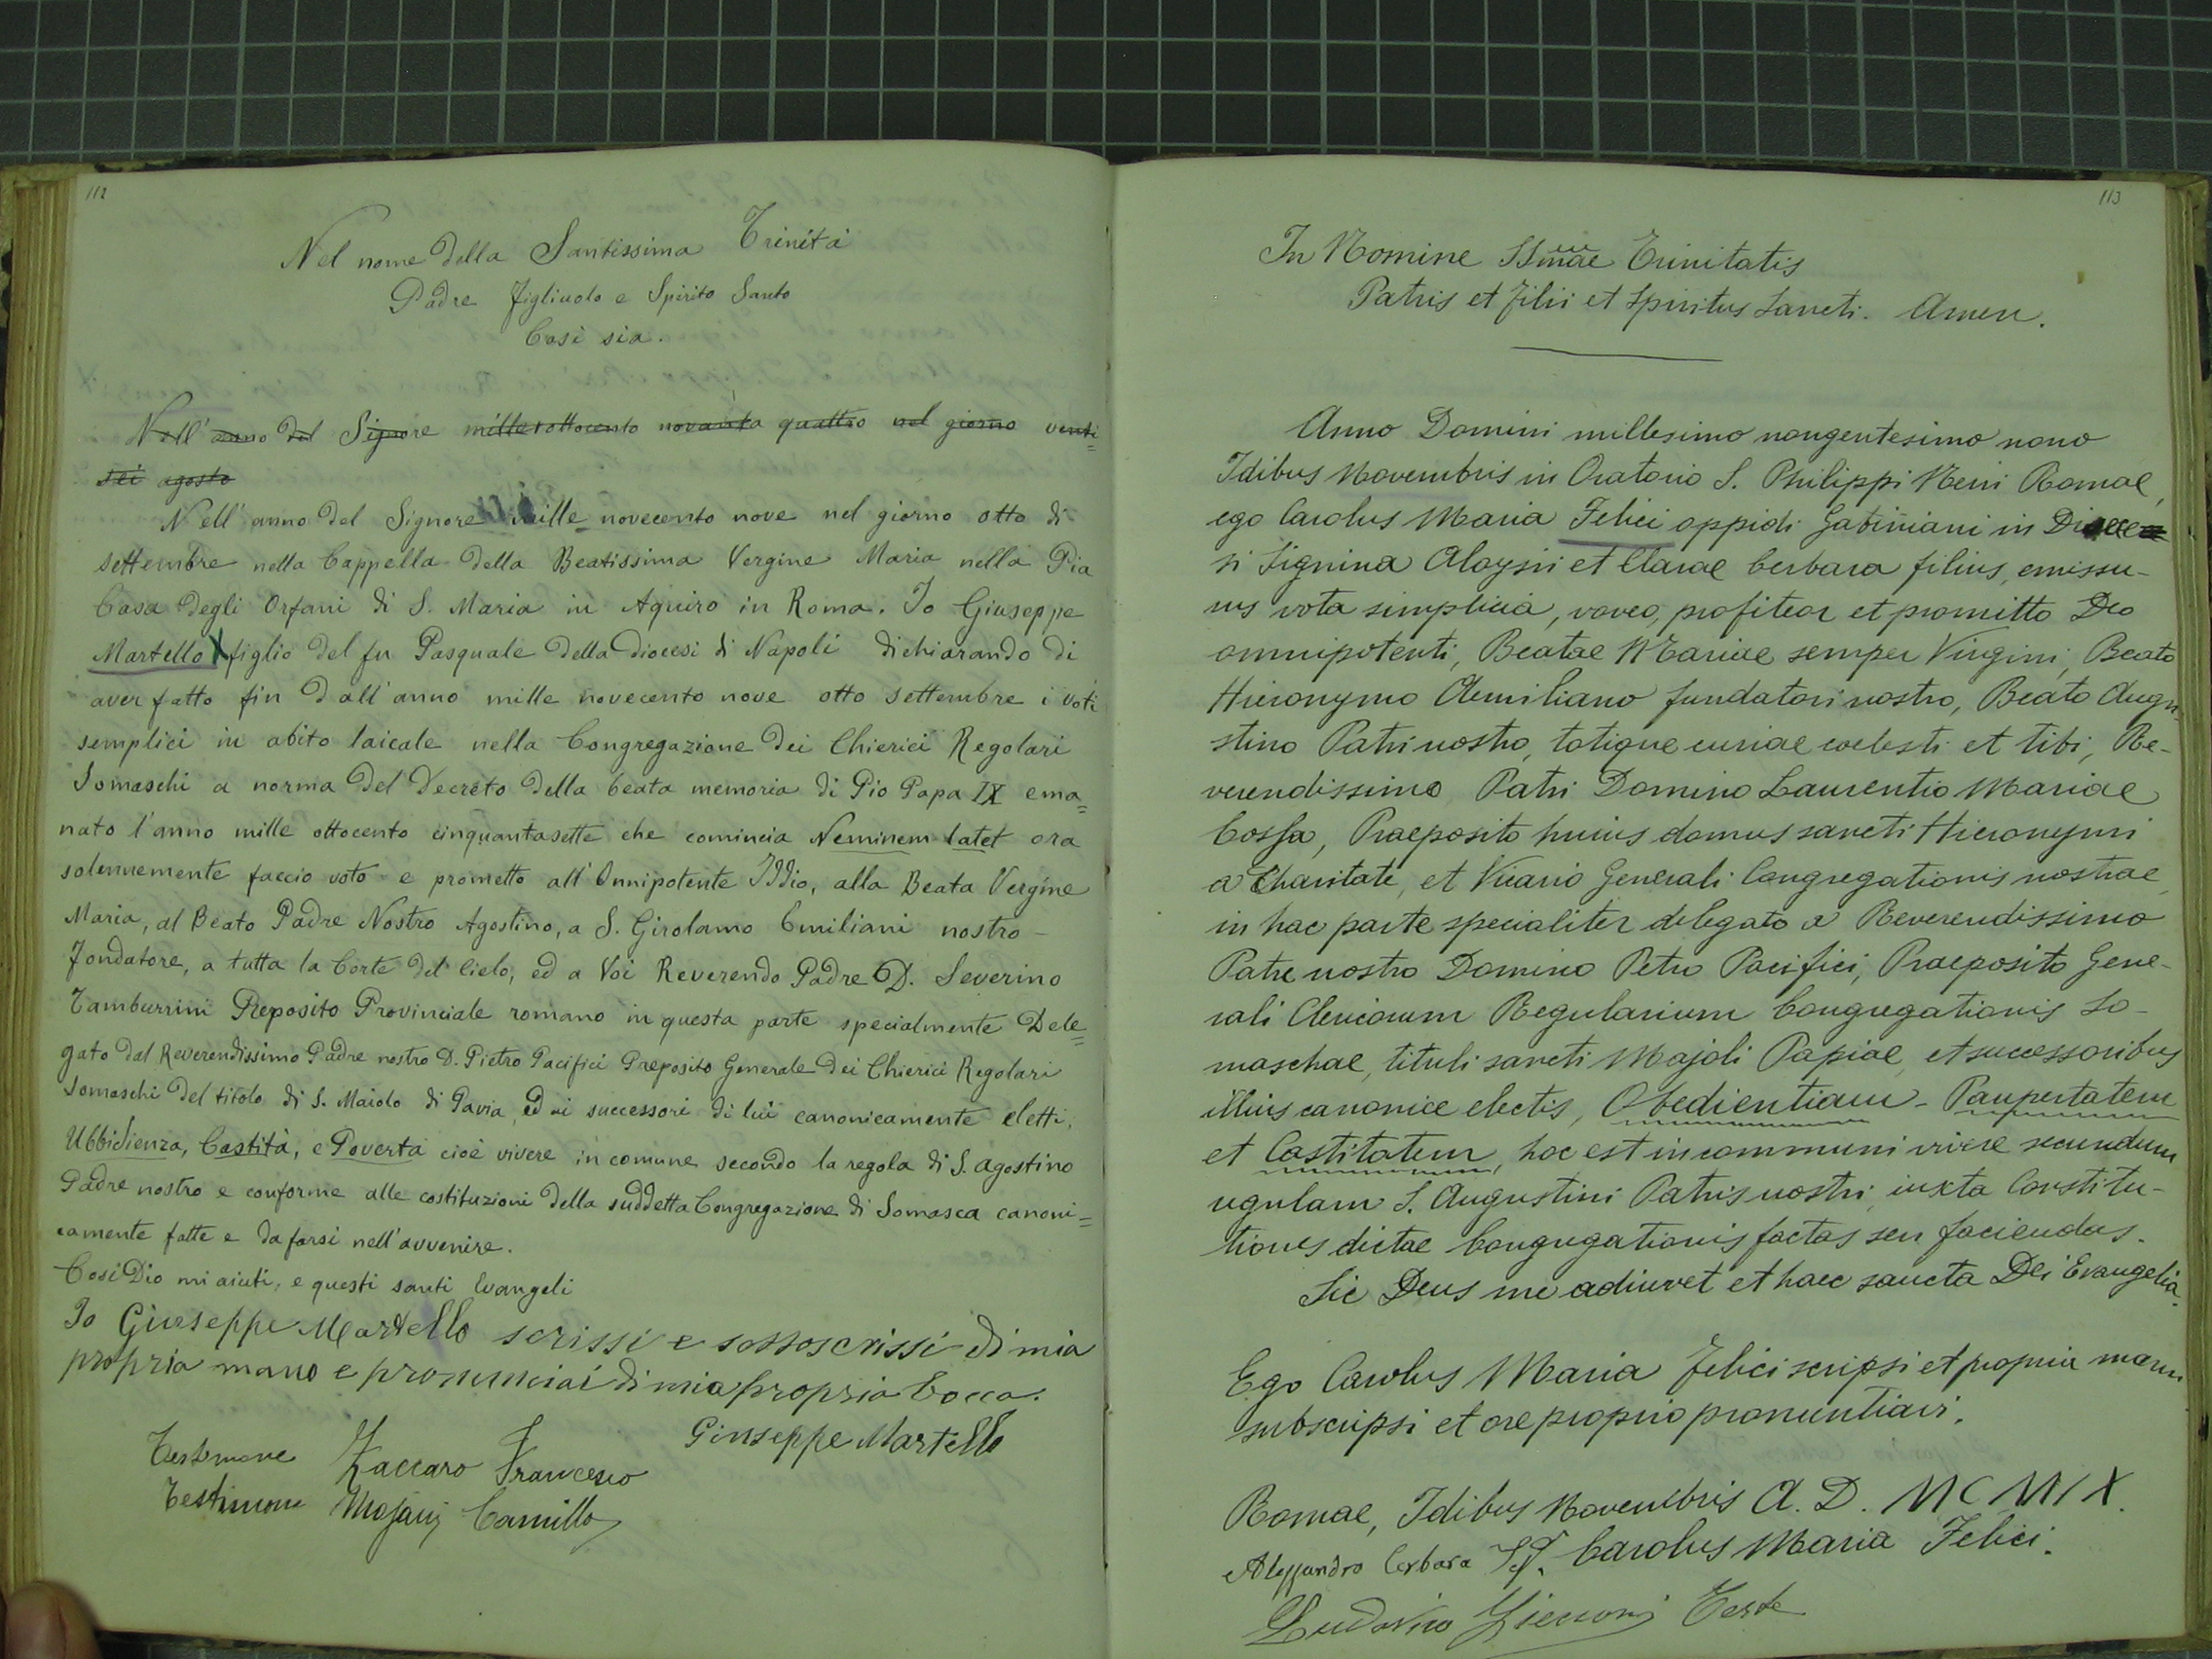 112
Nel nome della Santissima Trinità
Padre Figliuolo e Spirito Santo
Così sia.
Nell' anno del Signore mille ottocento novanta quattro nel giorno venti=
sei agosto
Nell' anno del Signore mille novecento nove nel giorno otto di
settembre nella Cappella della Beatissima Vergine Maria nella Pia
Casa degli Orfani di S. Maria in Aquiro in Roma. Io Giuseppe
Martello figlio del fu Pasquale della diocesi di Napoli dichiarando di
aver fatto fin dall' anno mille novecento nove otto settembre i voti
semplici in abito laicale nella Congregazione dei Chierici Regolari
Somaschi a norma del Decreto della beata memoria di Pio Papa IX ema=
nato l'anno mille ottocento cinquantasette che comincia Neminem latet ora
solennemente faccio voto e prometto all' Onnipotente Iddio, alla Beata Vergine
Maria, al Beato Padre Nostro Agostino, a S. Girolamo Emiliani nostro
Fondatore, a tutta la Corte del Cielo, ed a Voi Reverendo Padre D. Severino
Tamburrini Preposito Provinciale romano in questa parte specialmente Dele=
gato dal Reverendissimo Padre nostro D. Pietro Pacifici Preposito Generale dei Chierici Regolari
Somaschi del titolo di S. Maiolo di Pavia, ed ai successori di lui canonicamente eletti,
Ubbidienza, Castità, e Povertà cioè vivere in comune secondo la regola di S. Agostino
Padre nostro e conforme alle costituzioni della suddetta Congregazione di Somasca canoni=
camente fatte e da farsi nell'avvenire.
Così Dio mi aiuti, e questi santi Evangeli
Io Giuseppe Martello scrissi e sottoscrissi di mia
propria mano e pronunciai di mia propria bocca.
Giuseppe Martello
Testimone Zaccaro Francesco
Testimone Camillo
113
In Nomine SSmae Trinitatis
Patris et Filii et Spiritus Sancti. Amen.
Anno Domini millesimo nongentesimo nono
Idibus Novembris in Oratorio S. Philippi Nerii Romae,
ego Carolus Maria Felici oppidi Gabiniani in Dioece
si Signina Aloysii et Clarae Cerbara filius, emissu-
rus vota simplicia, voveo, profiteor et promitto Deo
omnipotenti, Beatae Mariae semper Virgini, Beato
Hieronymo Aemiliano fundatori nostro, Beato Augu-
stino Patri nostro, totique curiae coelesti et tibi, Re-
verendissimo Patri Domino Laurentio Mariae
Cossa, Praeposito huius domus sancti Hieronymi
a Charitate, et Vicario Generali Congregationis nostrae,
in hac parte specialiter delegato a Reverendissimo
Patre nostro Domino Petro Pacifici, Praeposito Gene-
rali Clericorum Regularium Congregationis So-
maschae, tituli sancti Majoli Papiae, et successoribus
illius canonice electis, Obedientiam - Paupertatem
et Castitatem, hoc est in communi vivere secundum
regulam S. Augustini Patris nostri, iuxta Constitu-
tiones dictae Congregationis factas seu faciendas.
Sic Deus me adiuvet et haec sancta Dei Evangelia.
Ego Carolus Maria Felici scripsi et propria manu
subscripsi et ore proprio pronuntiavi.
Romae, Idibus Novembris A. D. MCMIX.
Alessandro Cerbara Carolus Maria Felici.
Ludovico Teste